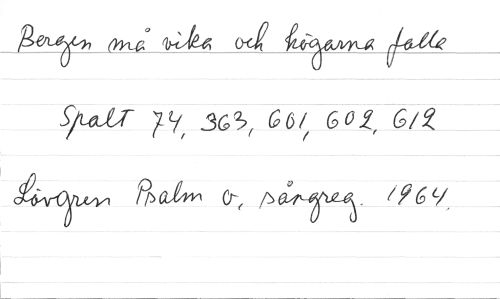 Bergen må vika och högarna falla
Spalt 74, 363, 601, 602, 612
Lövgren Psalm o, sångreg. 1964.